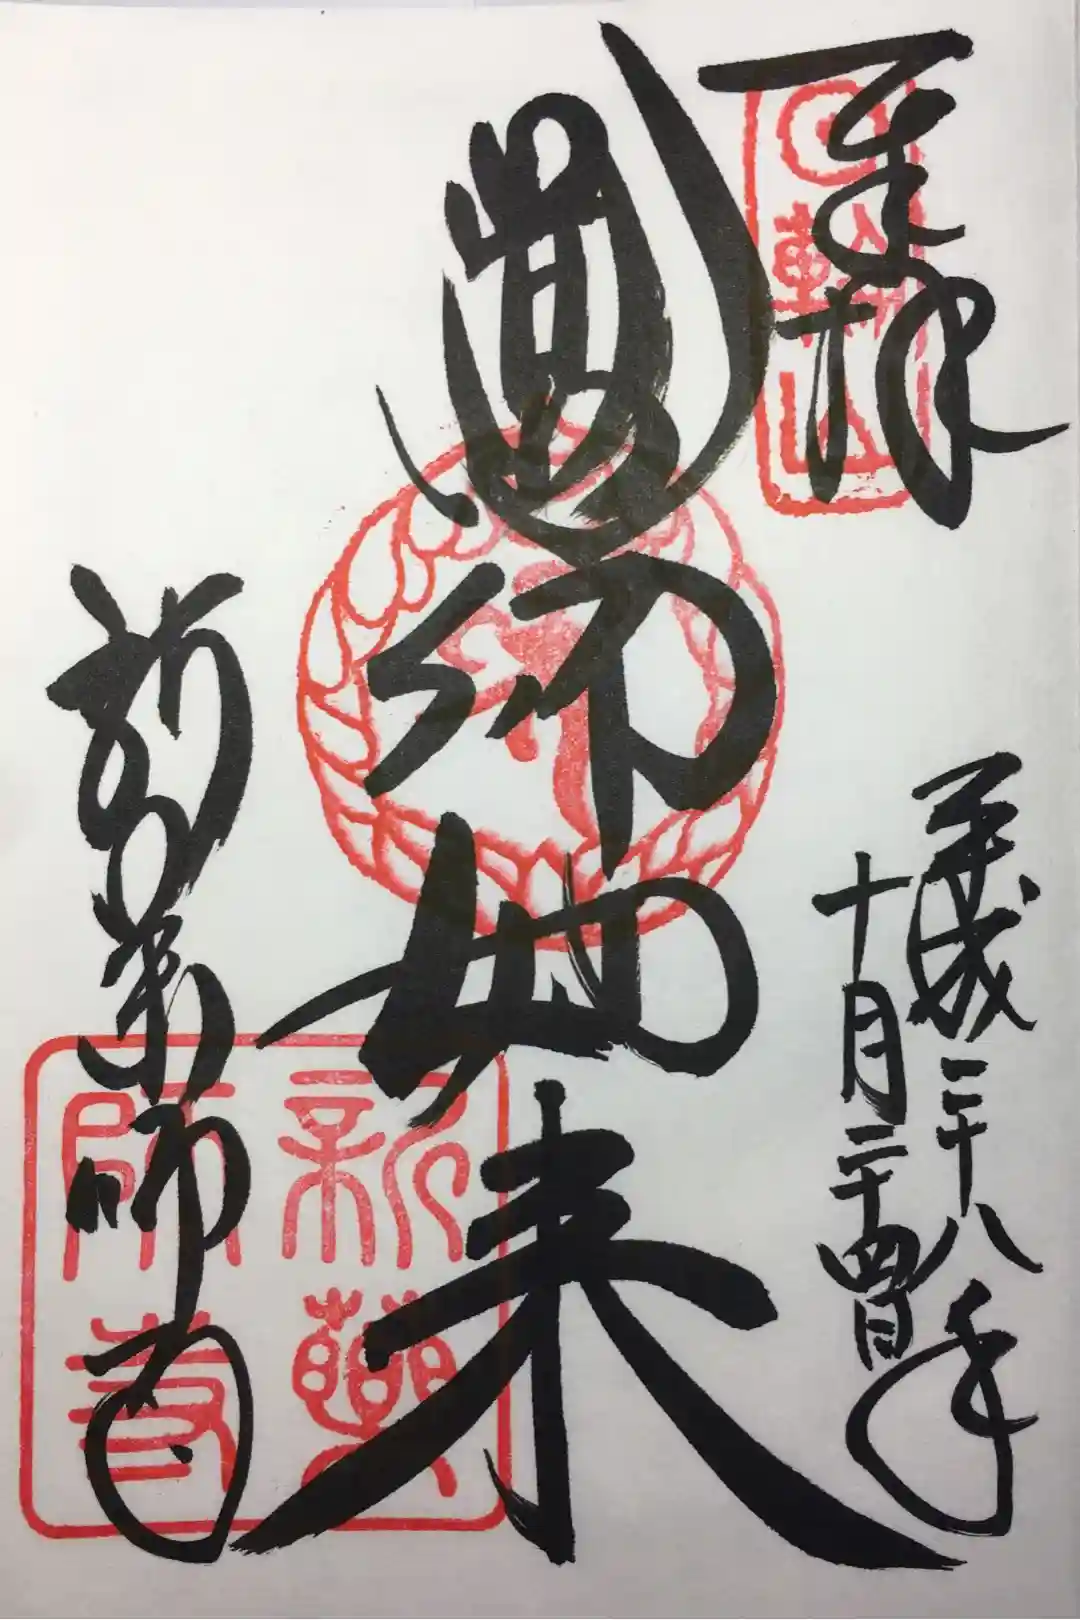 奉拝
日輪山
平成二十八年
十月二十四日
薬師如来
新薬師寺
新藥
師寺